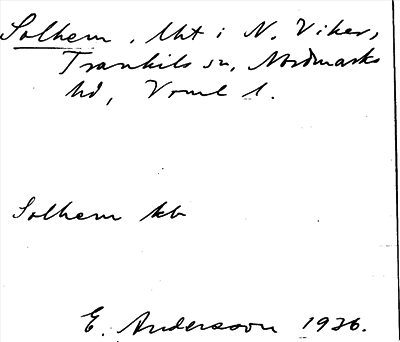 Solhem, lht i N. Viker,
Trankils sn, Nordmarks
hd, Vrml l.
Solhem kb
E. Andersson 1926.